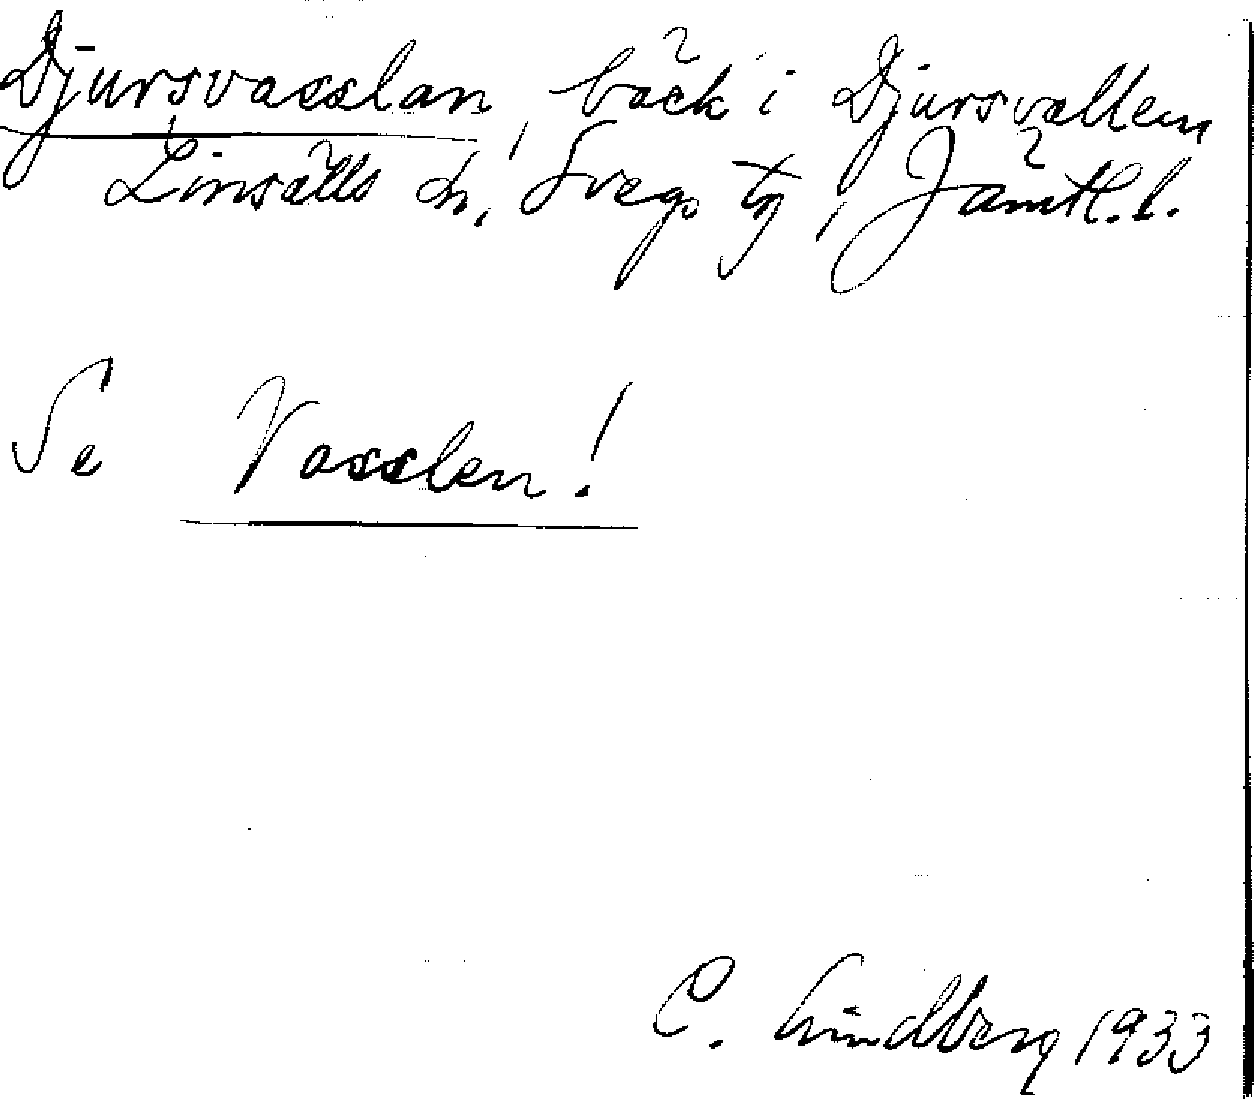 Djursvasslan, bäck i Djursvallen,
Linsälls sn, Svegs tg, Jämtl. l.
Se Vasslen!
C. Lindberg 1933